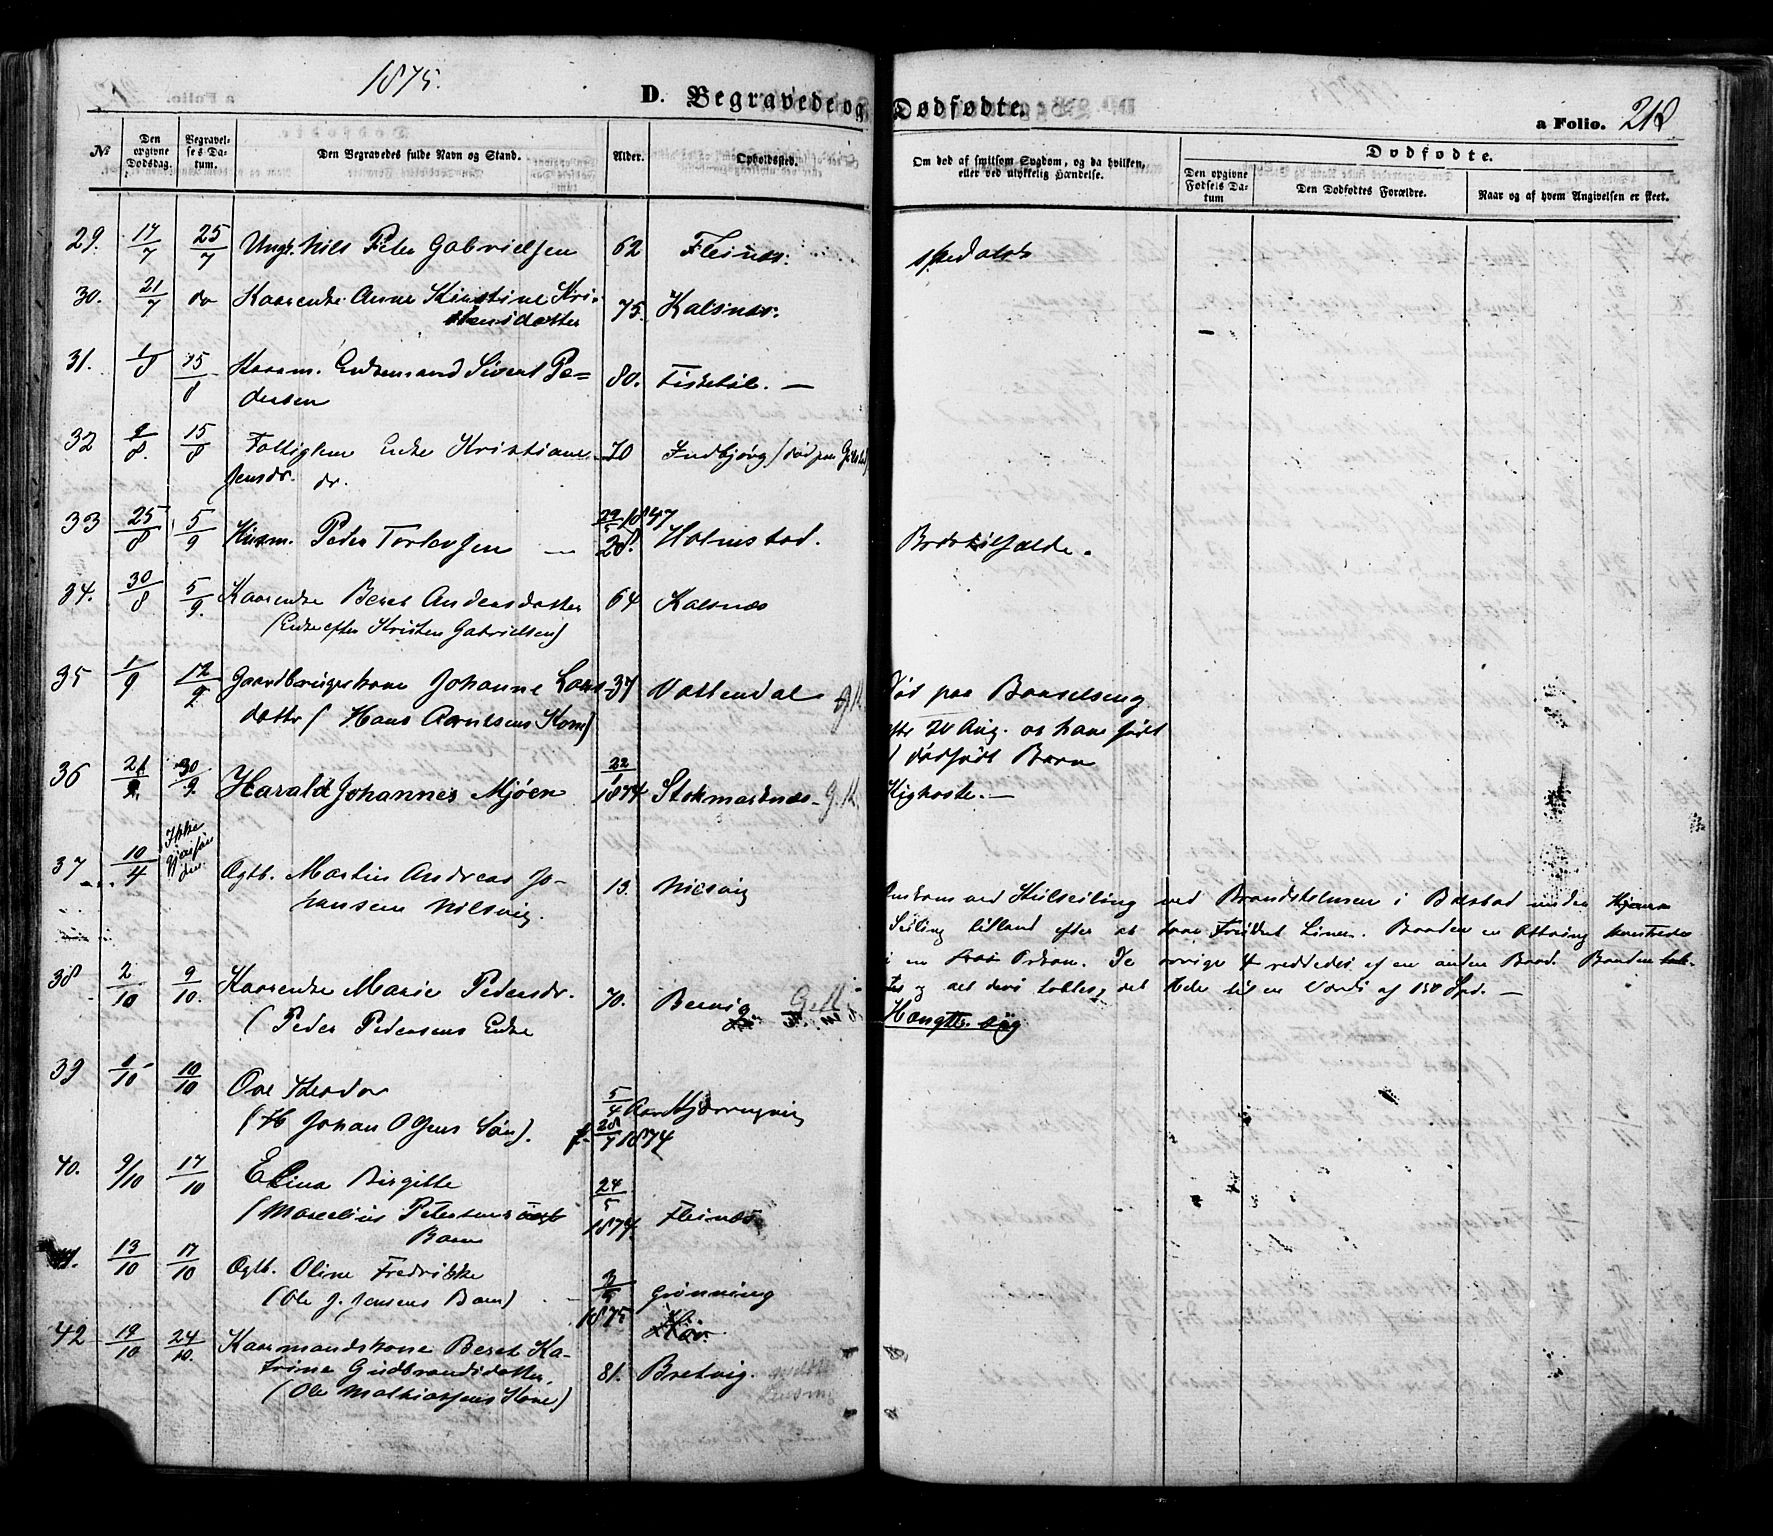 1875.
D. Begravede og Dødfødte.
a Folio. 218
No
Den opgivne Dødsdag.
Begravelses Datum.
Den Begravedes fulde Navn og Stand.
Alder.
Opholdssted.
Om død af smitsom Sygdom, og da hvilken, eller ved ulykkelig Hændelse.
Dødfødte.
Den opgivne Fødsels Datum
Den Dødfødtes Forældre.
Naar og af hvem Angivelsen er skeet.
29. 17/7 25/7 Ungk. Nils Peter Gabrielsen 62 Fleinæs. spedalsk
30. 21/7 do Kaarenke. Anne Kirstine Kri-
stensdatter 75. Kalsnæs.
31. 1/8 15/8 Kaarm. Enkemand Sivert Pe=
dersen 80. Fiskebøl. —
32 9/8 15/8 Fattiglem Enke Kristiane
Jensdr. 70 Indbjørg (død paa
33 25/8 5/9 Husm. Peder Torlevsen — 29/5 1847
28. Holmstad.
34. 30/8 5/9 Kaarenke Beret Andersdatter 64 Kalsnæs
(Enke efter Kristen Gabrielsen)
35 1/9 12/9 Gaardbrugerkone Johanne Lars-
datter (Hans Arntsens Kone) 37 Vottendal
Død paa
efter 20 Aug. at have født
1 dødfødt Barn
36 21/9. 30/9. Harald Johannes Mjøen 22/1
1874 Stokmarknæs- Kighoste. —
37 10/4 Ikke
Ogtb. Martin Andreas Jo-
hansen Nilsvig. 13. Nilsvig
Omkom ved Kulseiling ved i under
Seiling tilland efter at have Liner. Baaden en Ottring
i en Orkan. De øvrige 4 reddedes af en anden Baad. Baaden
og det deri til en Værdi af 150 Spd. —
38 2/10 9/10. Kaarenke Marie Pedersdr.
(Peder Pedersens Enke 70.
Hængte sig
39 10/10 Ove Teodor
(H Johan Olsens Søn). 5/4
28/7 1874
40. 9/10 17/10 Elina Birgitte
(Marcelius Petersens
Barn 24/5
1874. Fleinæs
41. 13/10 17/10 Ogtb. Oline Fredrikke
(Ole J. Jensens Barn) 1875 Grønning
42 19/10 24/10. Kaarmandskone Beret Ka-
trine Gudbrandsdatter.
(Ole Mathiassens Kone) 81. Bretvig.